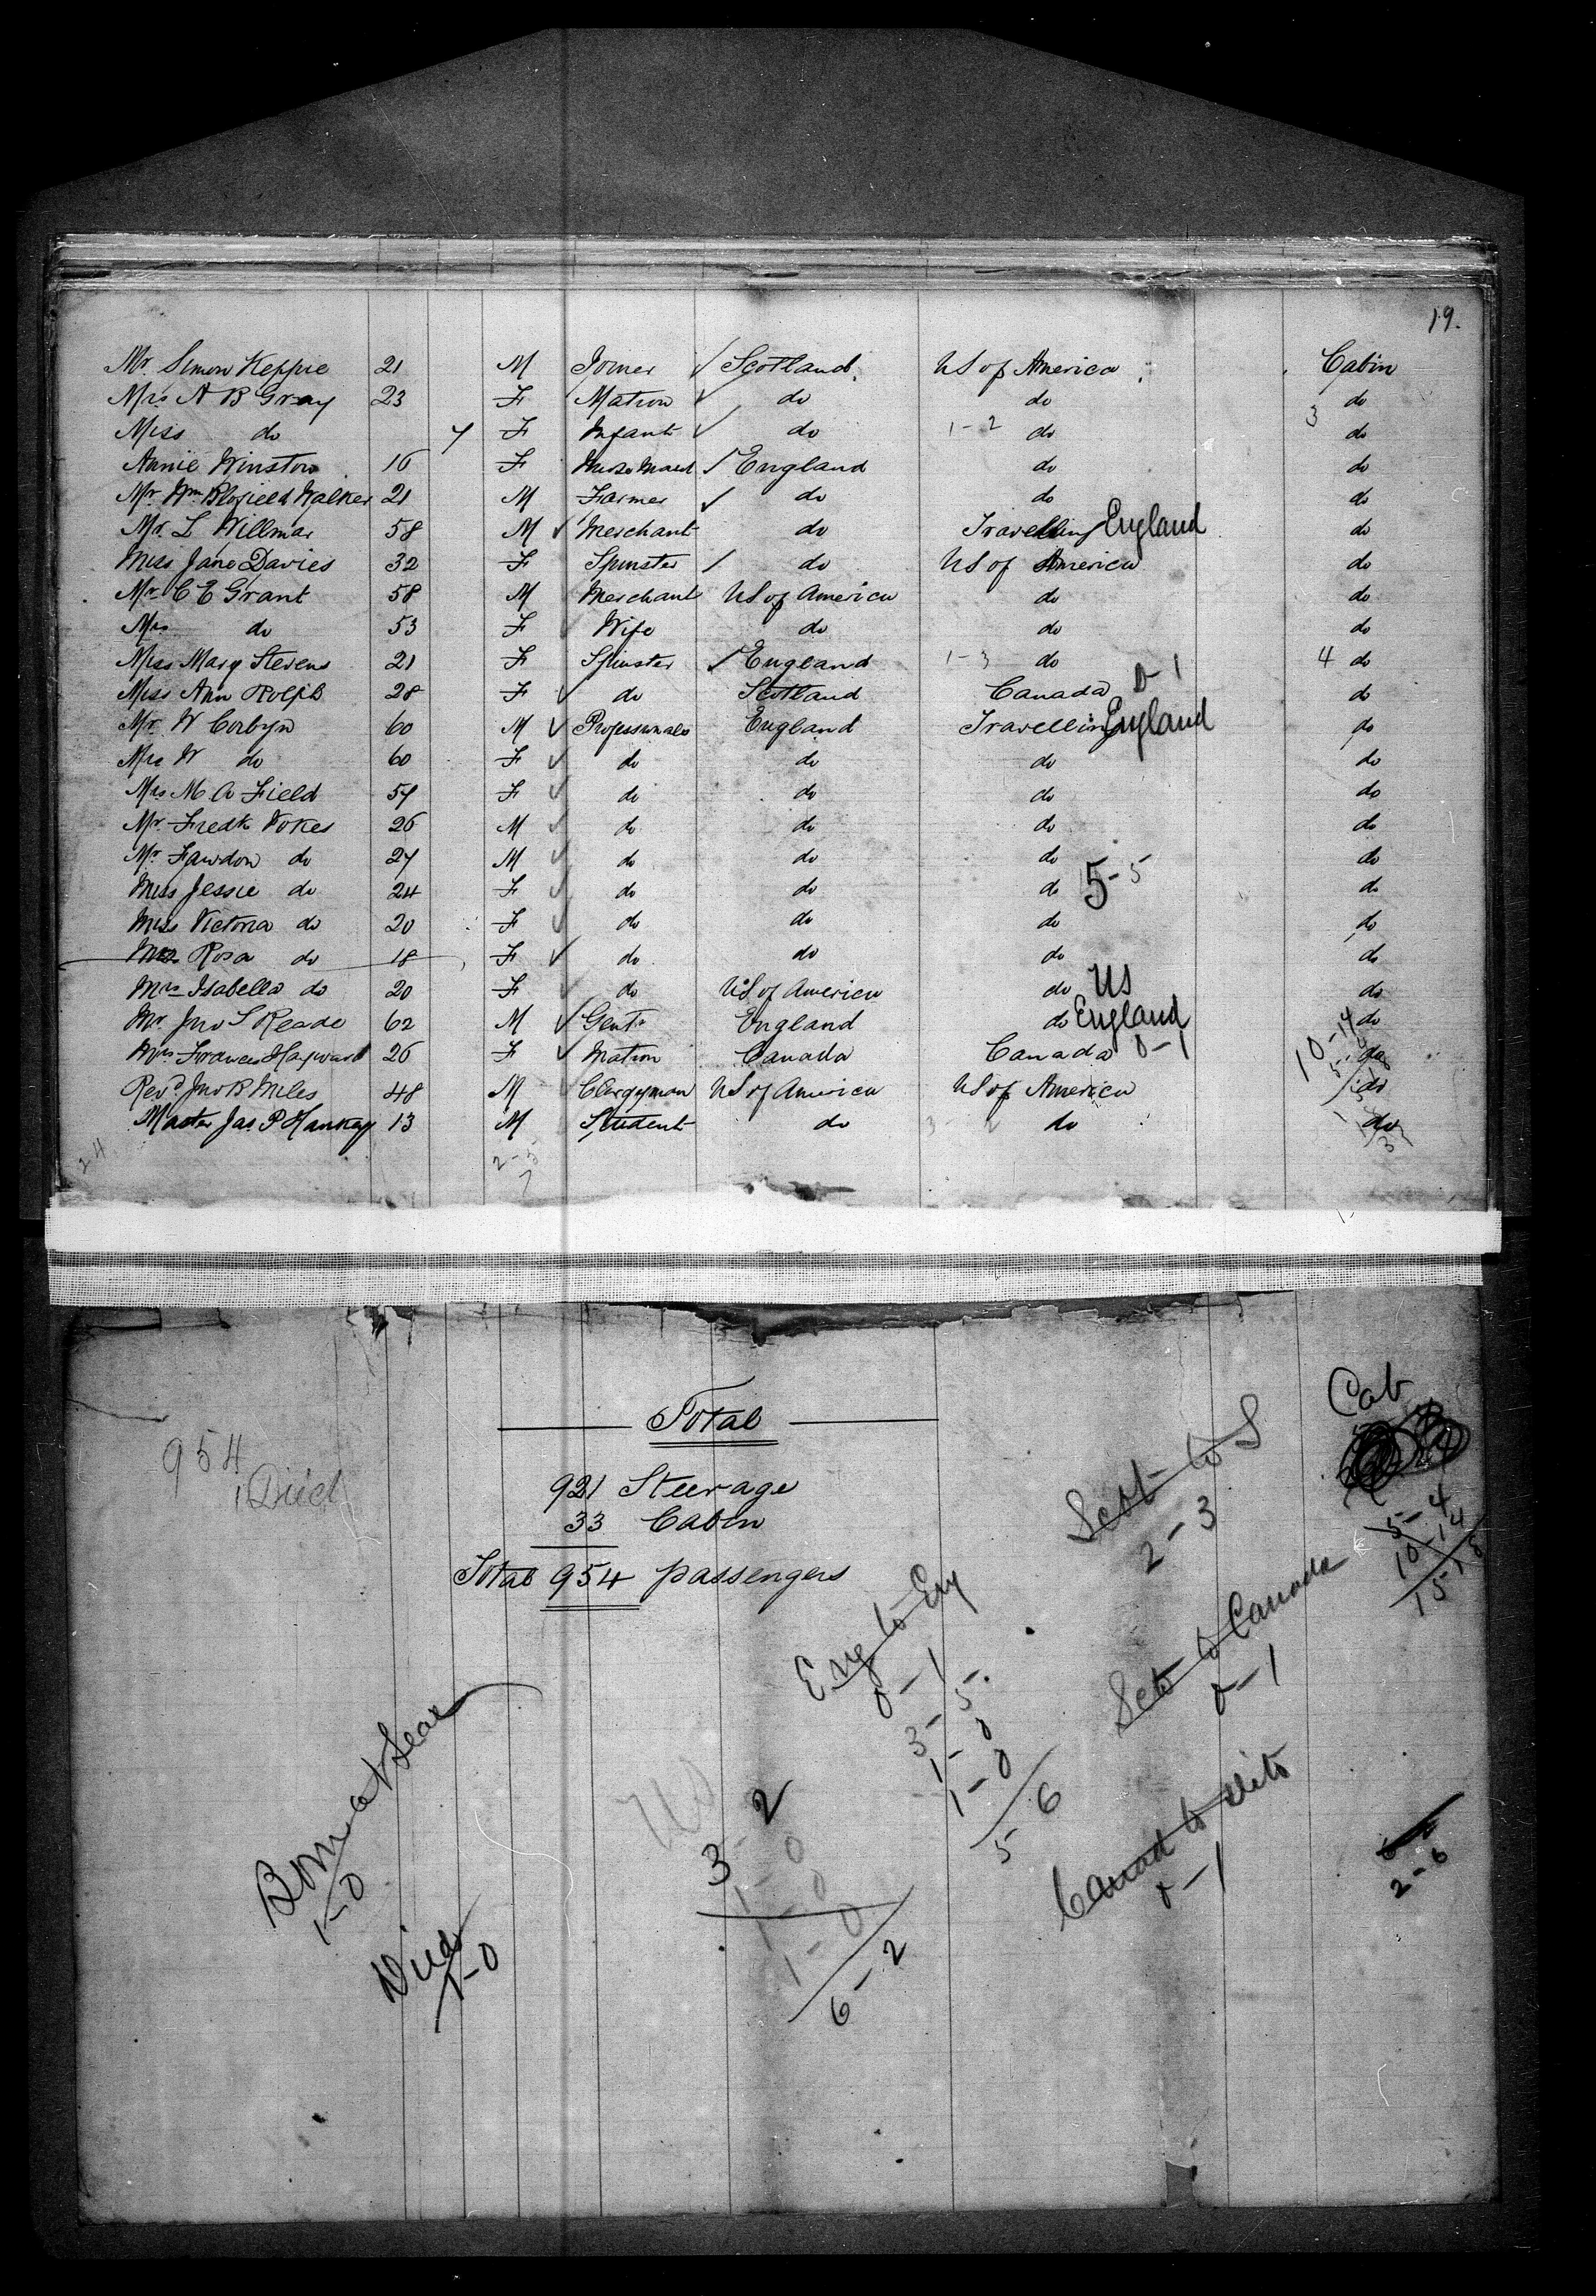 19.
Mr. Simon Keppie 21 M Joiner ✓ Scotland US of America Cabin
Mrs A B Gray 23 F Matron ✓ do do do
3
Miss do 7 F Infant ✓ do 1-2 do do
Annie Winston 16 F Nurse Maid ✓ England do do
Mr. Wm Blofield Walker 21 M Farmer ✓ do do do
Mr. L Willmar 58 M ✓ Merchant do Travelling England do
Miss Jane Davies 32 F Spinster / do US of America do
Mr C E Grant 58 M Merchant US of America do do
Mrs do 53 F Wife do do do
Miss Mary Stevens 21 F Spinster ✓ England 1-3 do 4 do
Miss Ann Rolph 28 F ✓ do Scotland Canada 0-1 do
Mr. W Corbyn 60 M ✓ Professionals England Travelling England do
Mrs W do 60 F ✓ do do do do
Mrs M A Field 57 F ✓ do do do do
Mr. Fredk Vokes 26 M ✓ do do do do
Mr. Fawdon do 27 M ✓ do do do do
5-5
Miss Jessie do 24 F ✓ do do do do
Miss Victoria do 20 F ✓ do do do do
Miss Rosa do 18 F ✓ do do do do
Mrs Isabella do 20 F ✓ do US of America do US do
Mr. Jno S Reade 62 M ✓ Gent. England do England do
10-14
Mrs Frances Hayward 26 F ✓ Matron Canada Canada 0-1 do
Revd. Jno B Miles 48 M Clergyman US of America US of America do
Master Jas. P Hankey 13 M Student do 3-2 do do
24
2-5
7
Total
Cab
954
1 Died
921 Steerage
33 Cabin
Total 954 passengers
Scot to S
2-3
5-4
10-14
15 18
Eng to Eng
0-1
3-5
1-0
1-0
5 6
Scto to Canada
0-1
Born at Sea
1-0
Died
1-0
US
3-2
1-0
1-0
1-0
6-2
Canad to ditto
0-1
2-6